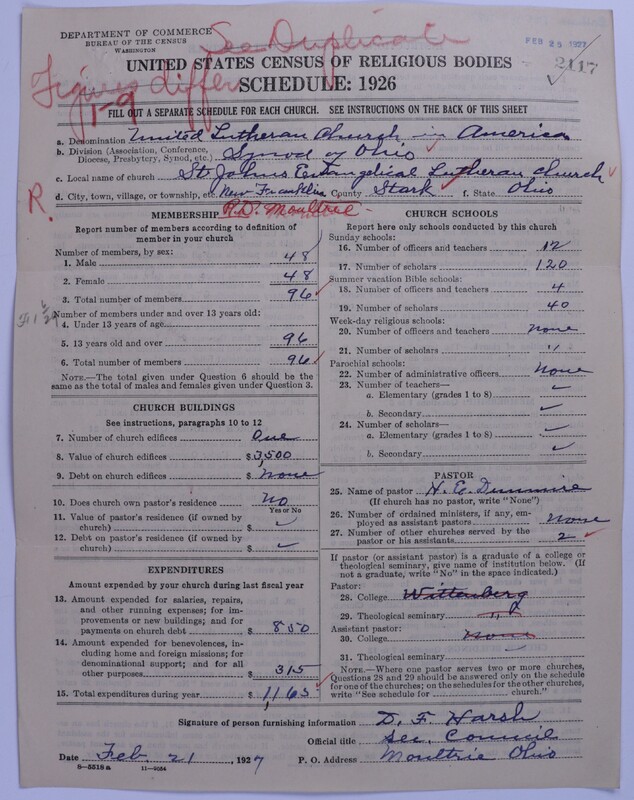 DEPARTMENT OF COMMERCE
BUREAU OF THE CENSUS
WASHINGTON
See Duplicate
FEB 25 1927
2117
Figures differ
1-9
UNITED STATES CENSUS OF RELIGIOUS BODIES
SCHEDULE: 1926
FILL OUT A SEPARATE SCHEDULE FOR EACH CHURCH. SEE INSTRUCTIONS ON THE BACK OF THIS SHEET
a. Denomination United Lutheran Church in America
b. Division (Association, Conference, Diocese, Presbytery, Synod, etc.) Synod of Ohio
c. Local name of church St Johns Evangelical Lutheran church
d. City, town, village, or township, etc. New Franklin County Stark f. State Ohio
R.
R.D. Moultrie
MEMBERSHIP
Report number of members according to definition of
member in your church
Number of members, by sex:
1. Male 48
2. Female 48
3. Total number of members 96
Number of members under and over 13 years old:
4. Under 13 years of age
5. 13 years old and over 96
6. Total number of members 96
NOTE.—The total given under Question 6 should be the
same as the total of males and females given under Question 3.
CHURCH BUILDINGS
See instructions, paragraphs 10 to 12
7. Number of church edifices One
8. Value of church edifices $ 3,500
9. Debt on church edifices $ None
10. Does church own pastor's residence? No
Yes or No
11. Value of pastor's residence (if owned by
church) $ ✓
12. Debt on pastor's residence (if owned by
church) $ ✓
EXPENDITURES
Amount expended by your church during last fiscal year
13. Amount expended for salaries, repairs,
and other running expenses; for im-
provements or new buildings; and for
payments on church debt $ 850
14. Amount expended for benevolences, in-
cluding home and foreign missions; for
denominational support; and for all
other purposes $ 315
15. Total expenditures during year $ 1,165
CHURCH SCHOOLS
Report here only schools conducted by this church
Sunday schools:
16. Number of officers and teachers 12
17. Number of scholars 120
Summer vacation Bible schools:
18. Number of officers and teachers 4
19. Number of scholars 40
Week-day religious schools:
20. Number of officers and teachers none
21. Number of scholars "
Parochial schools:
22. Number of administrative officers None
23. Number of teachers—
a. Elementary (grades 1 to 8) ✓
b. Secondary ✓
24. Number of scholars—
a. Elementary (grades 1 to 8) ✓
b. Secondary ✓
PASTOR
25. Name of pastor H. E.
(If church has no pastor, write "None")
26. Number of ordained ministers, if any, em-
ployed as assistant pastors none
27. Number of other churches served by the
pastor or his assistants 2
If pastor (or assistant pastor) is a graduate of a college or
theological seminary, give name of institution below. (If
not a graduate, write "No" in the space indicated.)
Pastor:
28. College Wittenberg
29. Theological seminary "
Assistant pastor:
30. College none
31. Theological seminary
NOTE.—Where one pastor serves two or more churches,
Questions 28 and 29 should be answered only on the schedule
for one of the churches; on the schedules for the other churches,
write "See schedule for church."
Signature of person furnishing information D. F. Harsh
Official title Sec. Council
Date Feb. 21, 1927 P. O. Address Moultrie Ohio
8—5518 a 11—9034